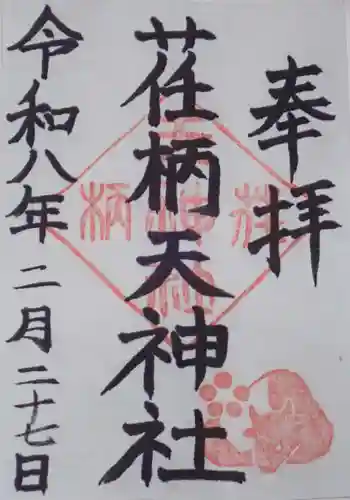 奉拝
荏柄天神社
令和八年二月二十七日